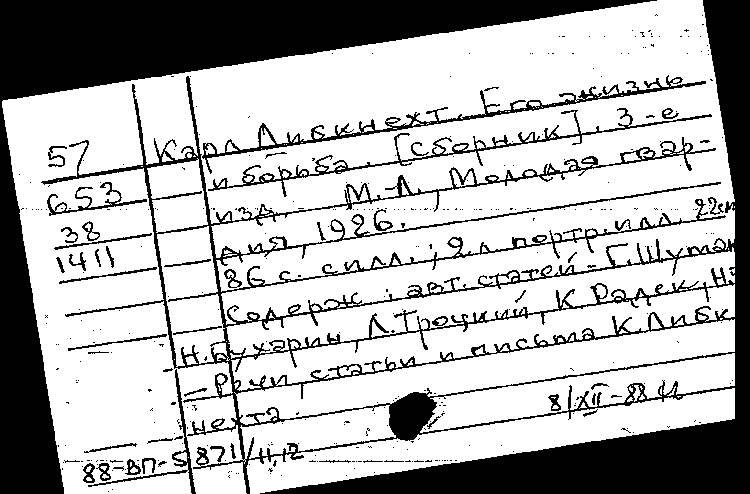 57 Карл Либкнехт. Его жизнь
653 и борьба. [Сборник]. 3-е
38 изд. М.-Л., Молодая гвар-
1411 дия, 1926.
86 с. с илл.; 2 л. портр. илл. 22см
Содерж.: авт. статей - Г. Шуман
Н. Бухарин, Л. Троцкий, К. Радек, Н.
— Речи, статьи и письма К. Либк
нехта.
8/XII-88
88-ВП-5871/11,12